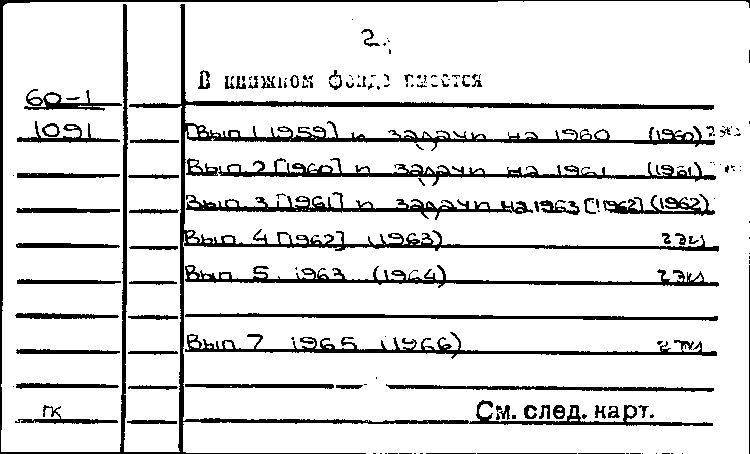 2.
В книжном фонде имеется
60-1
1091
[Вып. 1 1959] и задачи на 1960 (1960) 2 экз
Вып. 2 [1960] и задачи на 1961 (1961)
Вып. 3 [1961] и задачи на 1963 [1962] (1962)
Вып. 4 [1962] (1963) 2 экз
Вып. 5. 1963 (1964) 2 экз
Вып. 7 1965 (1966) 2 экз
ГК См. след. карт.